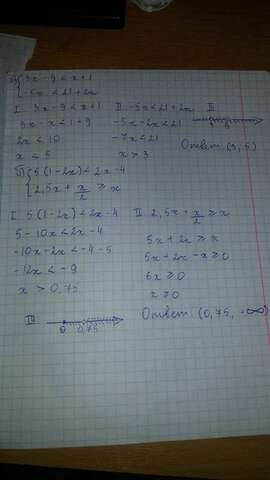 а) { 3x - 9 < x + 1
{ -5x < 21 + 2x
I. 3x - 9 < x + 1
3x - x < 1 + 9
2x < 10
x < 5
II. -5x < 21 + 2x
-5x - 2x < 21
-7x < 21
x > 3
III
Ответ (3, 5)
б) { 5(1 - 2x) < 2x - 4
{ 2,5x + x/2 ≥ x
I. 5(1 - 2x) < 2x - 4
5 - 10x < 2x - 4
-10x - 2x < -4 - 5
-12x < -9
x > 0,75
II. 2,5x + x/2 ≥ x
5x + 2x ≥ x
5x + 2x - x ≥ 0
6x ≥ 0
x ≥ 0
III
0 0,75
Ответ (0,75, +∞)